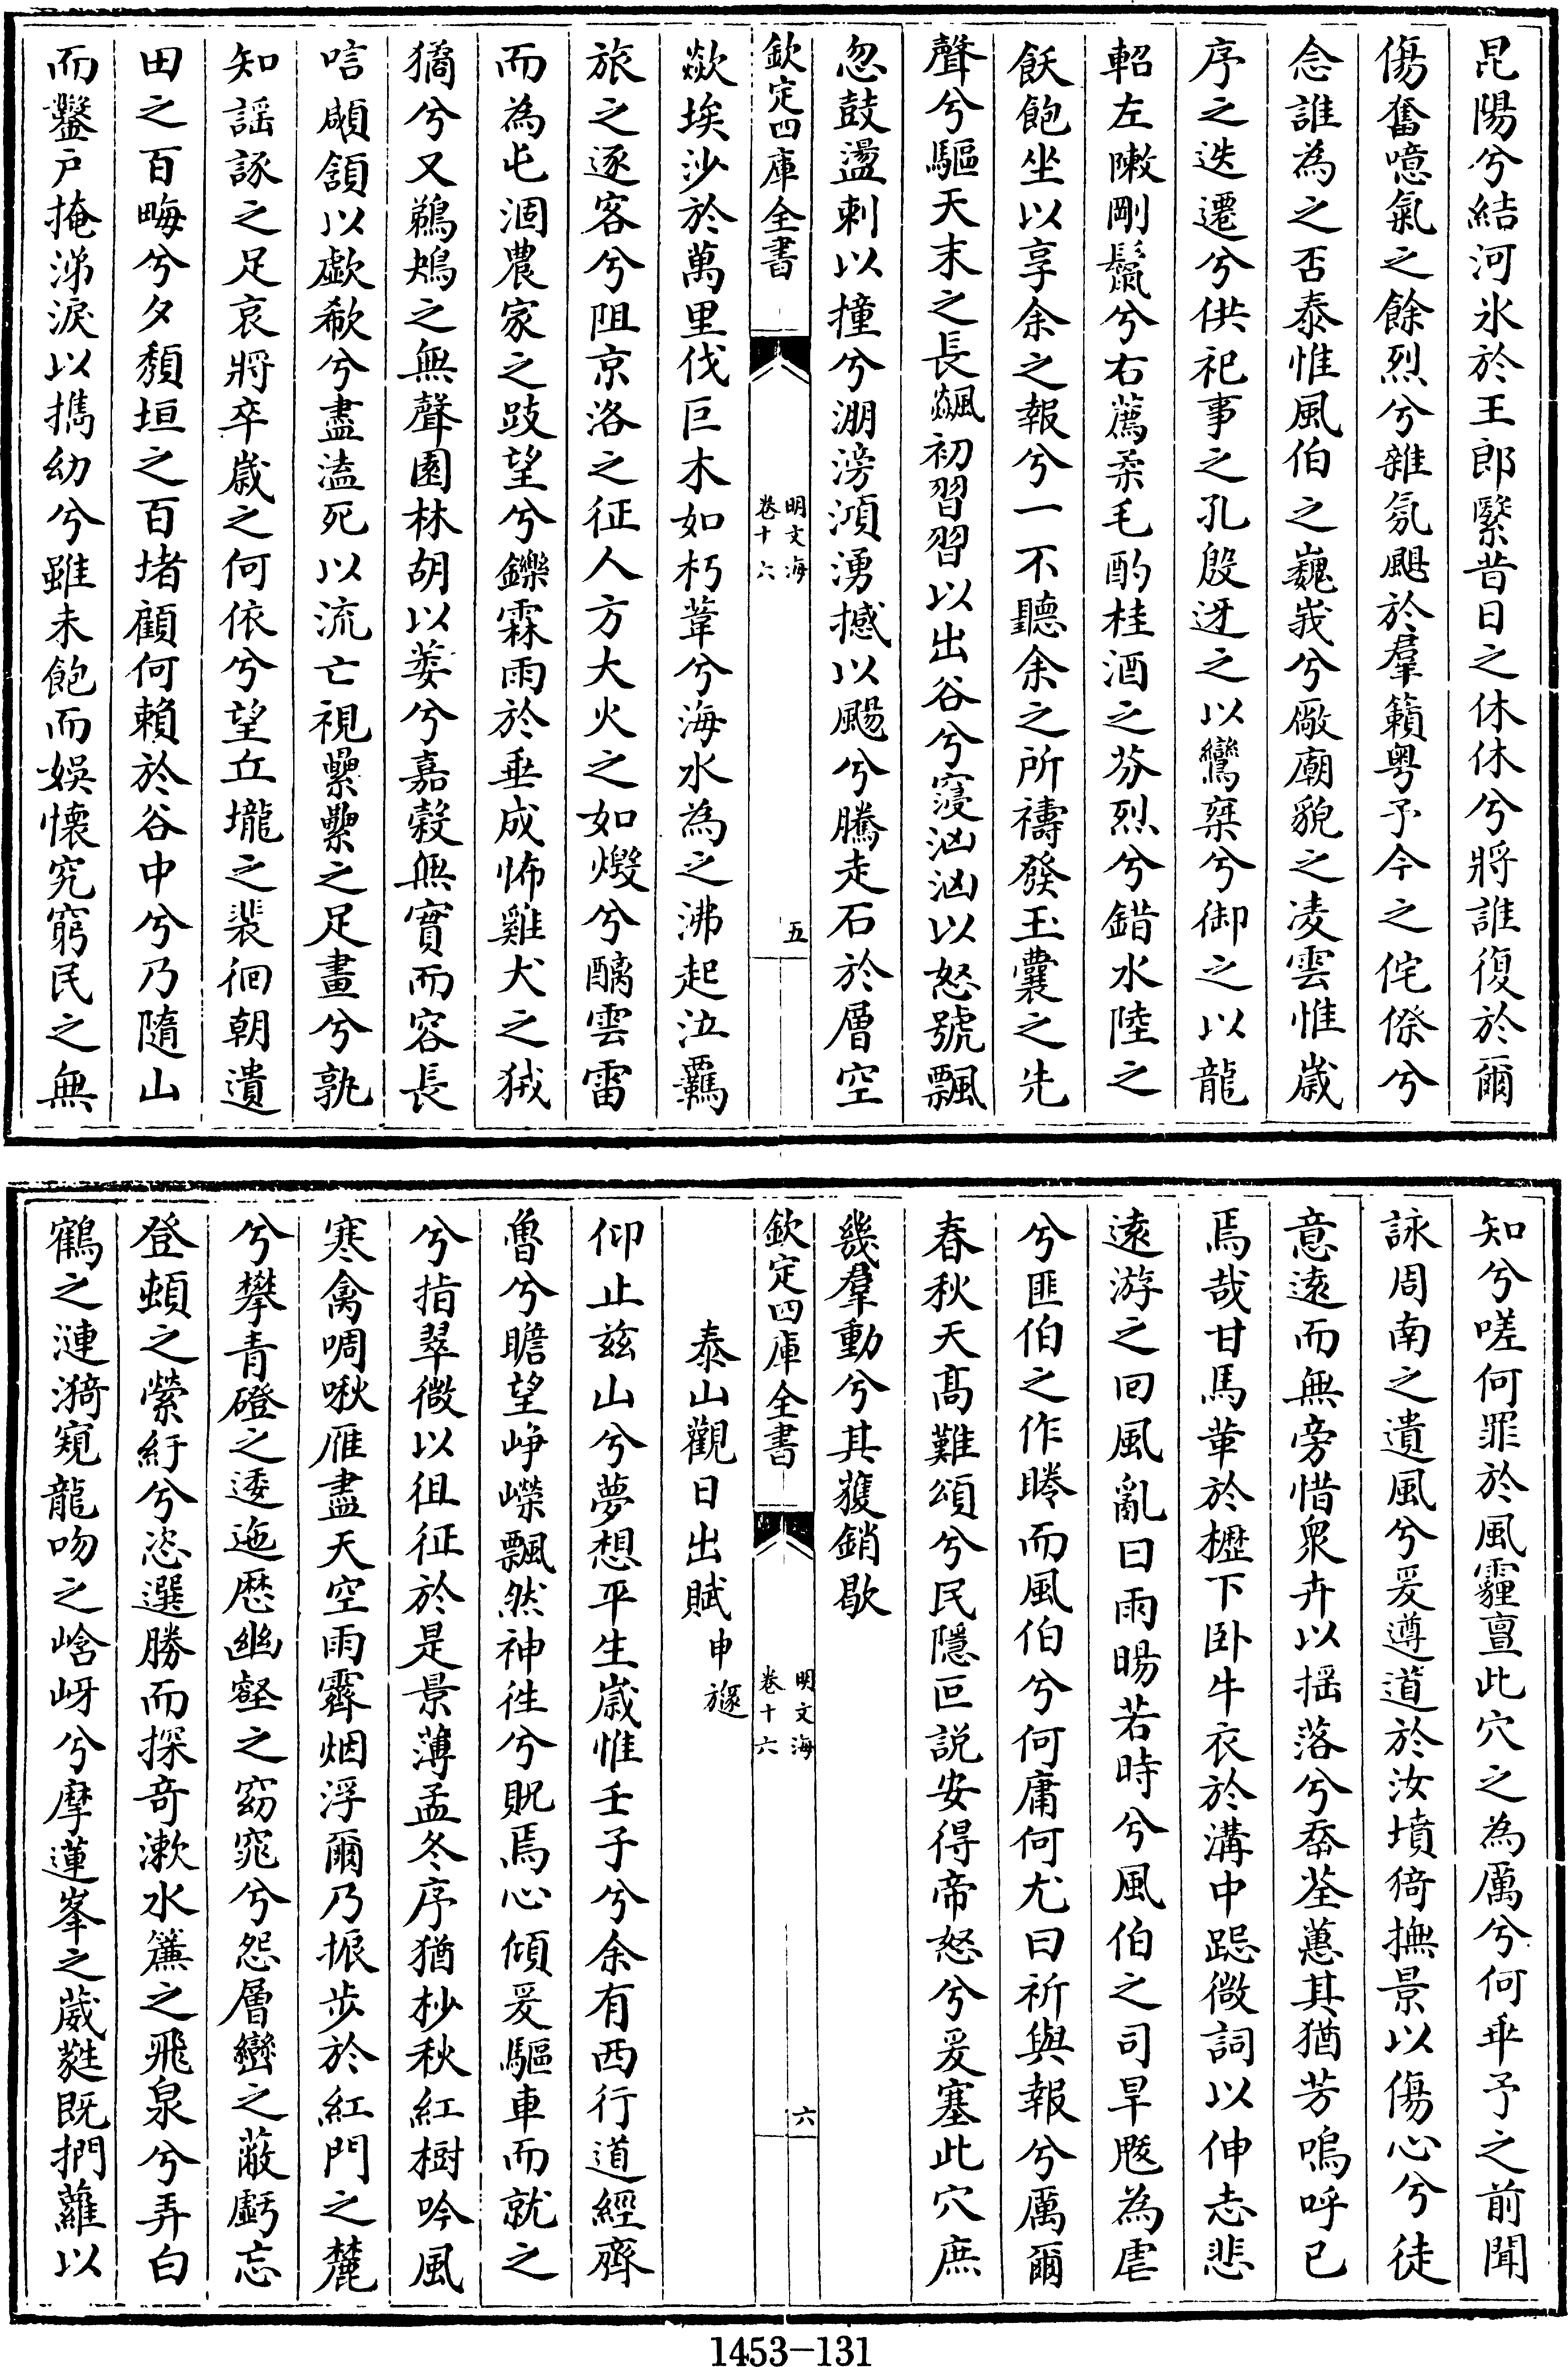 昆陽兮結河氷於王郎繄昔日之休休兮將誰復於爾
傷奮噫氣之餘烈兮雜氛颶於羣籟粤予今之侘傺兮
念誰為之否泰惟風伯之巍峩兮厰廟貌之凌雲惟歲
序之迭遷兮供祀事之孔殷迓之以鸞椉兮御之以龍
軺左陳剛鬛兮右薦柔毛酌桂酒之芬烈兮錯水陸之
飫飽坐以享余之報兮一不聽余之所禱發玉囊之先
聲兮驅天末之長飆初習習以出谷兮寖洶洶以怒號飄
忽鼓盪刺以撞兮淜滂澒湧撼以颺兮騰走石於層空
欽定四庫全書
明文海
卷十六
五
歘埃沙於萬里伐巨木如朽葦兮海水為之沸起泣羈
旅之逐客兮阻京洛之征人方大火之如燬兮醨雲雷
而為屯涸農家之跂望兮鑠霖雨於垂成怖雞犬之狘
獝兮又鵜鴂之無聲園林胡以萎兮嘉穀無實而容長
唁顑頷以歔欷兮盡溘死以流亡視纍纍之足畫兮孰
知謡諑之足哀將卒歲之何依兮望丘壠之裴徊朝遺
田之百畮兮夕頽垣之百堵顧何賴於谷中兮乃隨山
而鑿戶掩涕淚以擕幼兮雖未飽而娛懷究窮民之無
知兮嗟何罪於風霾亶此穴之為厲兮何乖予之前聞
詠周南之遺風兮爰遵道於汝墳猗撫景以傷心兮徒
意遠而無旁惜衆卉以摇落兮荃蕙其猶芳嗚呼已
焉哉甘馬革於櫪下卧牛衣於溝中跽微詞以伸志悲
遠游之回風亂曰雨暘若時兮風伯之司旱魃為虐
兮匪伯之作眵而風伯兮何庸何尤曰祈與報兮厲爾
春秋天髙難頌兮民隱叵説安得帝怒兮爰塞此穴庶
幾羣動兮其蒦銷歇
欽定四庫全書
明文海
卷十六
六
泰山觀日出賦申𣄴
仰止兹山兮夢想平生歲惟壬子兮余有西行道經齊
魯兮瞻望崢嶸飄然神徃兮貺焉心傾爰驅車而就之
兮指翠微以徂征於是景薄孟冬序猶杪秋紅樹吟風
寒禽啁啾雁盡天空雨霽烟浮爾乃振步於紅門之麓
兮攀青磴之逶迤歴幽壑之窈窕兮怨層巒之蔽虧忘
登頓之縈紆兮恣選勝而探奇漱水簾之飛泉兮弄白
鶴之漣漪窺龍吻之㟏岈兮摩蓮峯之葳蕤既捫蘿以
1453-131